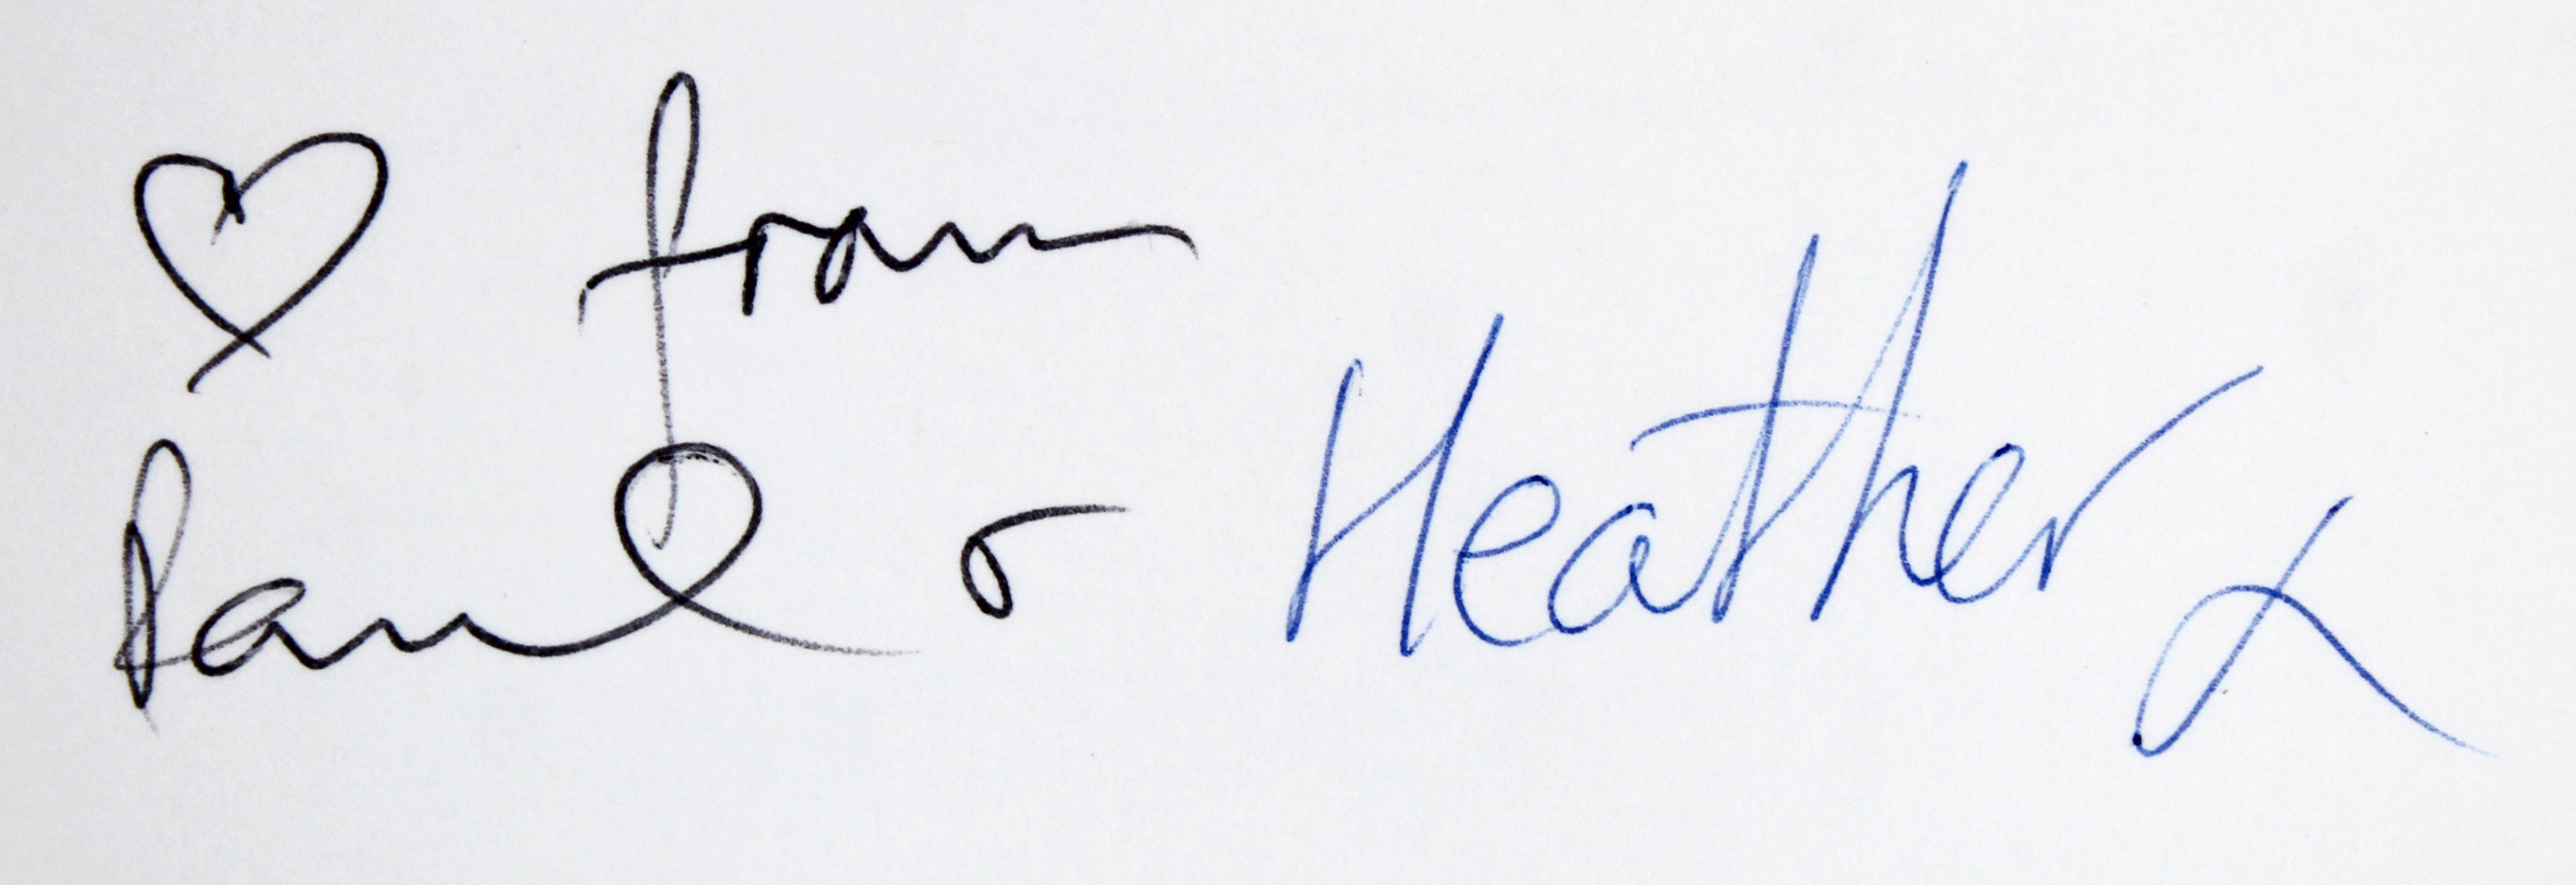 ♡ from
Paul & Heather x